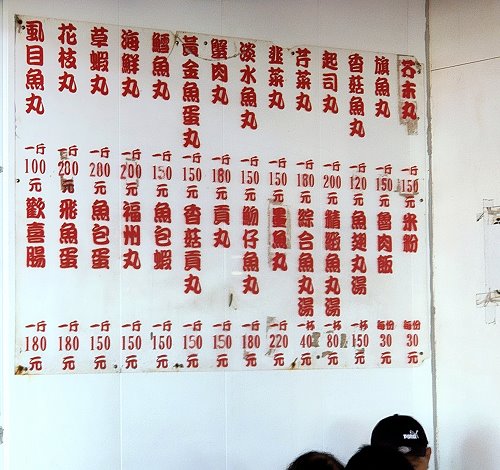 虱目魚丸 一斤 100 元
花枝丸 一斤 200 元
草蝦丸 一斤 200 元
海鮮丸 一斤 200 元
鱈魚丸 一斤 150 元
黃金魚蛋丸 一斤 150 元
蟹肉丸 一斤 180 元
淡水魚丸 一斤 150 元
韭菜丸 一斤 150 元
芹菜丸 一斤 180 元
起司丸 一斤 200 元
香菇魚丸 一斤 120 元
旗魚丸 一斤 150 元
芥末丸 一斤 150 元
歡喜腸 一斤 180 元
飛魚蛋 一斤 180 元
魚包蛋 一斤 150 元
福州丸 一斤 150 元
魚包蝦 一斤 150 元
香菇貢丸 一斤 150 元
貢丸 一斤 150 元
魩仔魚丸 一斤 180 元
墨魚丸 一斤 220 元
綜合魚丸湯 一杯 40 元
魚丸湯 一杯 80 元
魚翅丸湯 一杯 150 元
魯肉飯 每份 30 元
米粉 每份 30 元